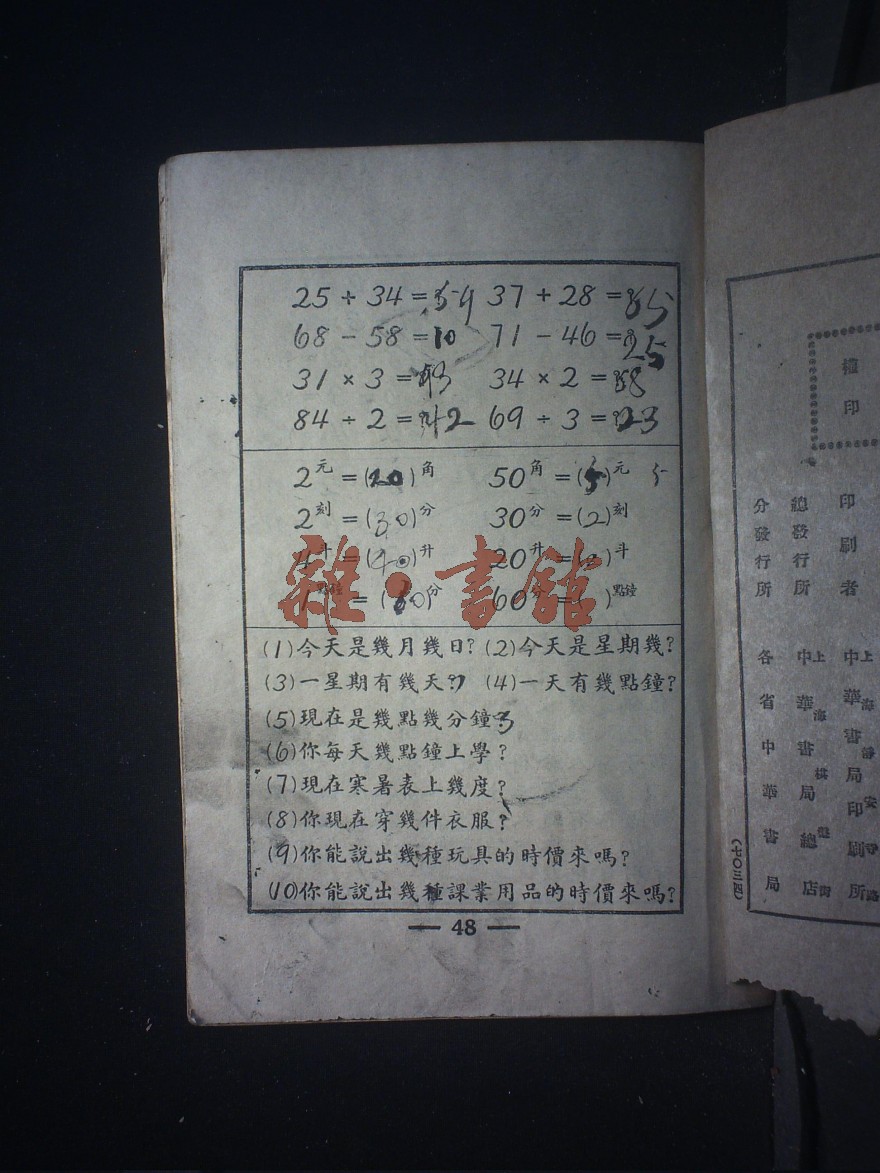 25 + 34 = 59 37 + 28 = 65
68 - 58 = 10 71 - 46 = 25
31 × 3 = 93 34 × 2 = 68
84 ÷ 2 = 42 69 ÷ 3 = 23
2元 = (20)角 50角 = (5)元 5
2刻 = (30)分 30分 = (2)刻
4斗 = (40)升 20升 = ( )斗
1點鐘 = (60)分 60分 = ( )點鐘
雜·書館
(1)今天是幾月幾日? (2)今天是星期幾?
(3)一星期有幾天?7 (4)一天有幾點鐘?
(5)現在是幾點幾分鐘?
(6)你每天幾點鐘上學?
(7)現在寒暑表上幾度?
(8)你現在穿幾件衣服?
(9)你能說出幾種玩具的時價來嗎?
(10)你能說出幾種課業用品的時價來嗎?
— 48 —
權印
印刷者 上海靜安寺路 中華書局印刷所
總發行所 上海棋盤街 中華書局總店
分發行所 各省中華書局
(七〇三四)